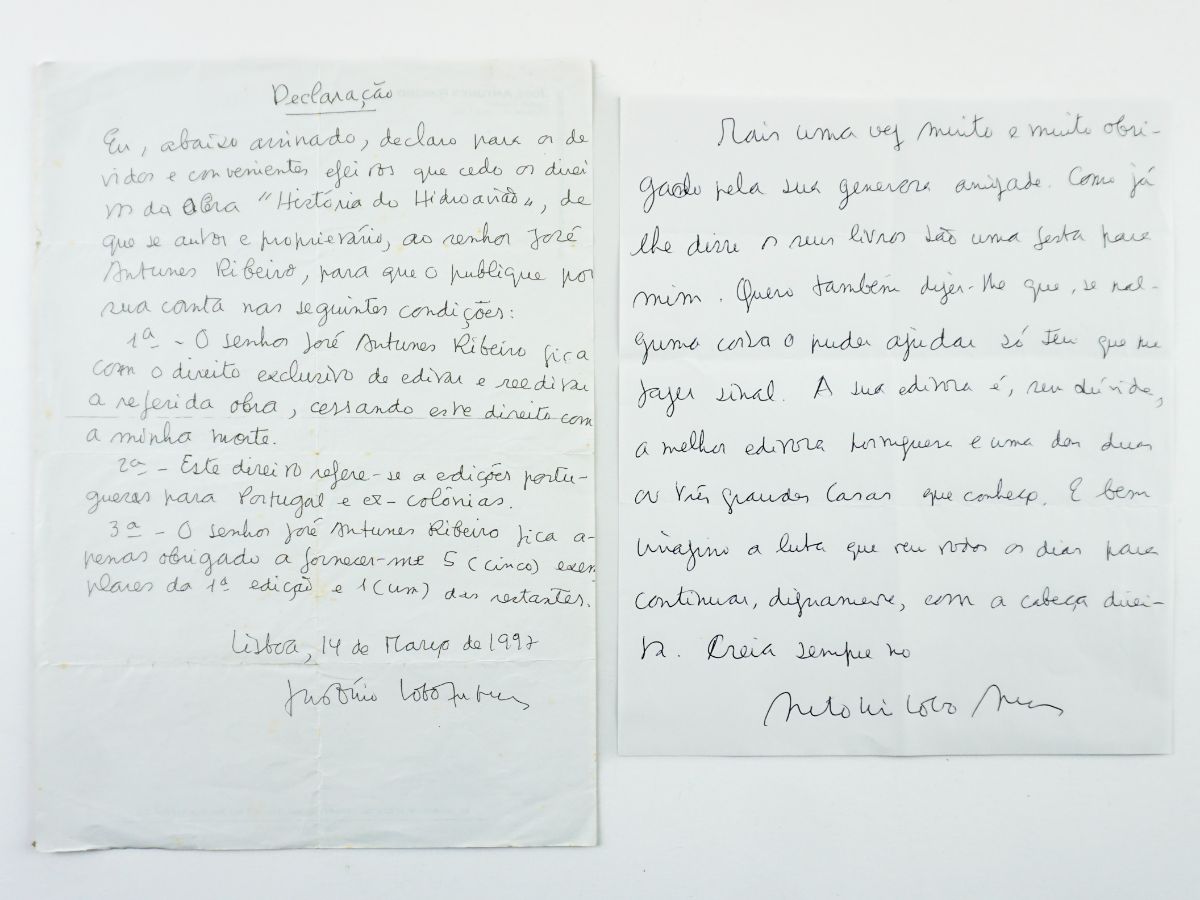 Declaração
Eu, abaixo assinado, declaro para os de
vidos e convenientes efeitos que cedo os direi
tos da obra "História do Hidroavião", de
que se autor e proprietário, ao senhor José
Antunes Ribeiro, para que o publique por
sua conta nas seguintes condições:
1ª - O senhor José Antunes Ribeiro fica
com o direito exclusivo de editar e reeditar
a referida obra, cessando este direito com
a minha morte.
2ª - Este direito refere-se a edições portu-
guesas para Portugal e ex-colônias.
3ª - O senhor José Antunes Ribeiro fica a-
penas obrigado a fornecer-me 5 (cinco) exem
plares da 1ª edição e 1 (um) das restantes.
Lisboa, 14 de Março de 1997
António Lobo Antunes
Mais uma vez muito e muito obri-
gado pela sua generosa amizade. Como já
lhe disse os seus livros são uma festa para
mim. Quero também dizer-lhe que, se nal-
guma coisa o puder ajudar só tem que me
fazer sinal. A sua editora é, sem dúvida,
a melhor editora portuguesa e uma das duas
ou três grandes Casas que conheço. E bem
imagino a luta que tem todos os dias para
continuar, dignamente, com a cabeça direi-
ta. Creia sempre no
António Lobo Antunes